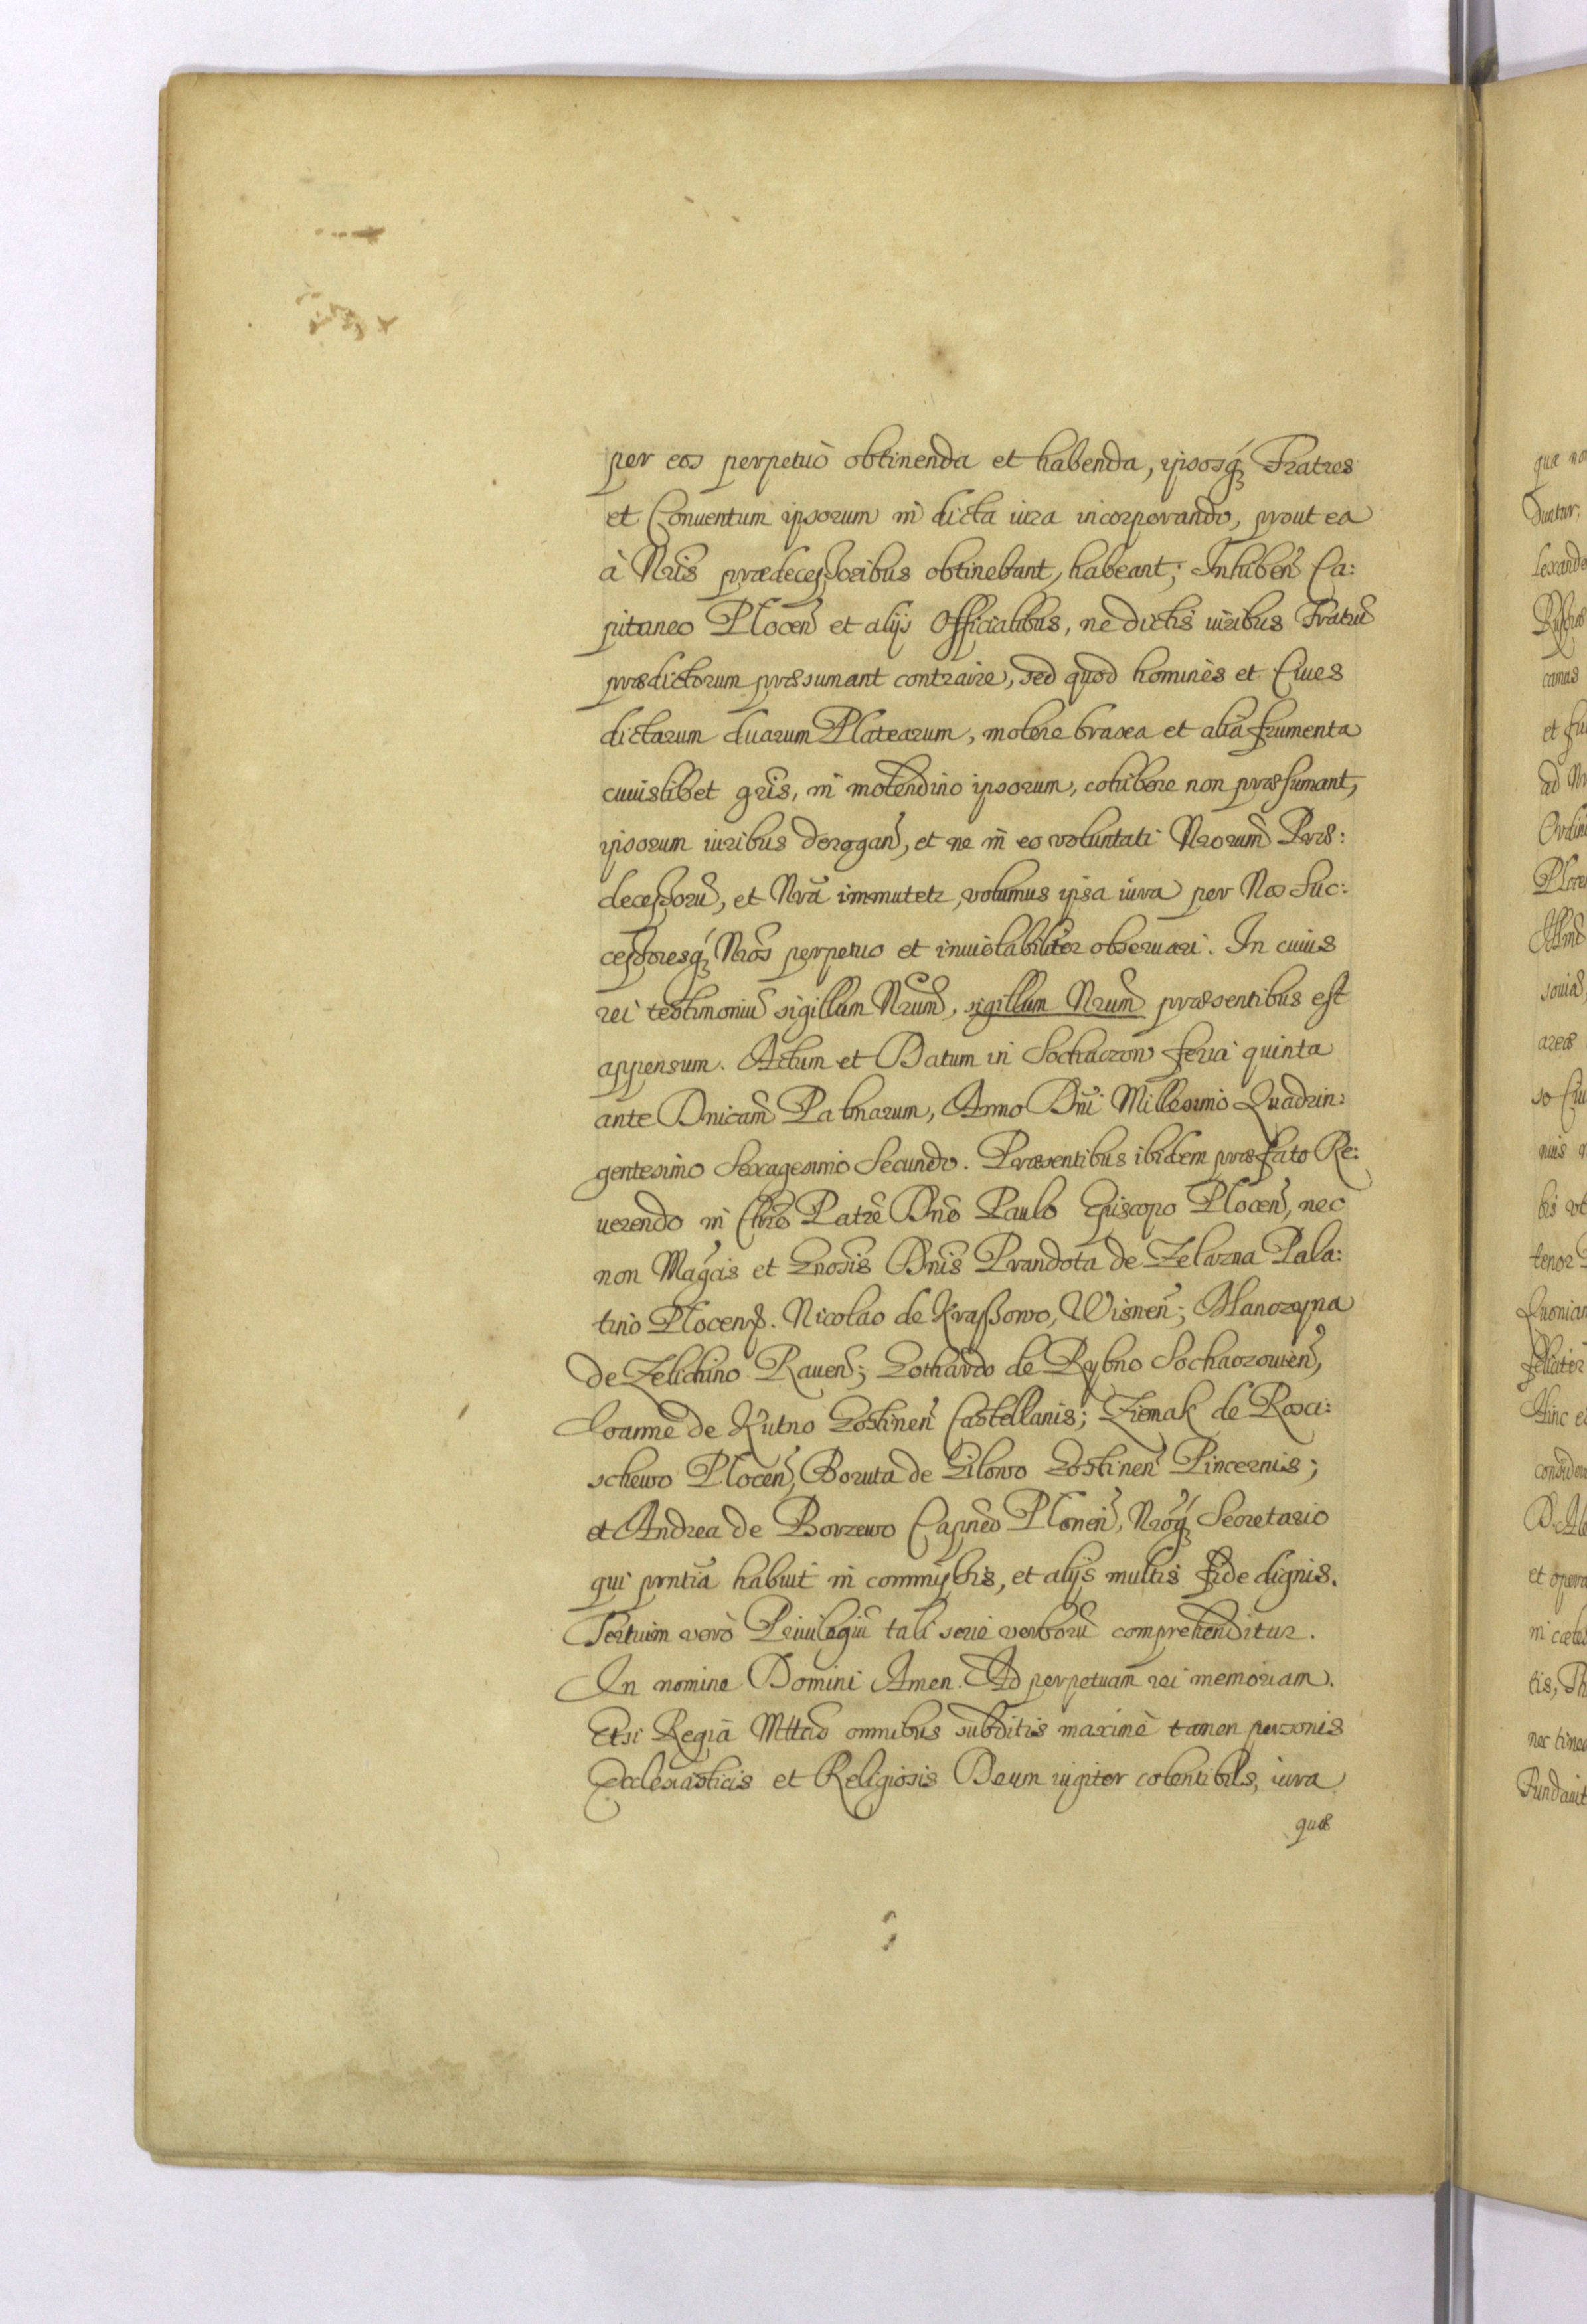 per eos perpetuò obtinenda et habenda, ipsosq́ꝫ Fratres
et Conuentum ipsorum in dicta iura incorporando, prout ea
à Nris̃ prædecessoribus obtinebant, habeant; Inhibeñ Ca:
pitaneo Ploceñ et alijs Officialibus, ne dictis iuribus Fratrũ
prædictorum præsumant contraire, sed quod homines et Ciues
dictarum duarum Platearum, molere brasea et alia frumenta
cuiuslibet gñis, in molendino ipsorum, cohibere non præsumant,
ipsorum iuribus derogañ, et ne in eo voluntati Nrorum̃ Præ:
decessorũ, et Nrã immutetr, volumus ipsa iura per Nos Suc:
cessoresq́ꝫ Nros̃ perpetuo et inuiolabiliter obseruari. In cuius
rei testimoniũ sigillum Nrum̃, sigillum Nrum̃ præsentibus est
appensum. Actum et Datum in Sochaczow feria quinta
ante Dnicam̃ Palmarum, Anno Dnĩ Millesimo Quadrin:
gentesimo Sexagesimo Secundo. Præsentibus ibidem præfato Re:
uerendo in Chrõ Patrẽ Dnõ Paulo Episcopo Ploceñ, nec
non Magcis̃ et Gnosis̃ Dnis̃ Prandota de Zelazna Pala:
tino Plocenß. Nicolao de Kraßowo, Wisneñ;
de Zelichino Raueñ; Gothardo de Rybno Sochaczouieñ,
Ioanne de Kutno Gostineñ Castellanis; Ziemak de Rosci:
schewo Ploceñ, Boruta de Gilowo Gostineñ Pincernis;
et Andrea de Borzewo Capneõ Ploneñ, Nroq́ꝫ Secretario
qui prntiã habuit in commißis, et alijs multis fide dignis.
Tertium verò Priuilegiũ tali serie verborũ comprehenditur.
In nomine Domini Amen. Ad perpetuam rei memoriam.
Etsi Regia Mttas̃ omnibus subditis maximè tamen personis
Ecclesiasticis et Religiosis Deum iugiter colentibus, iura
quæ